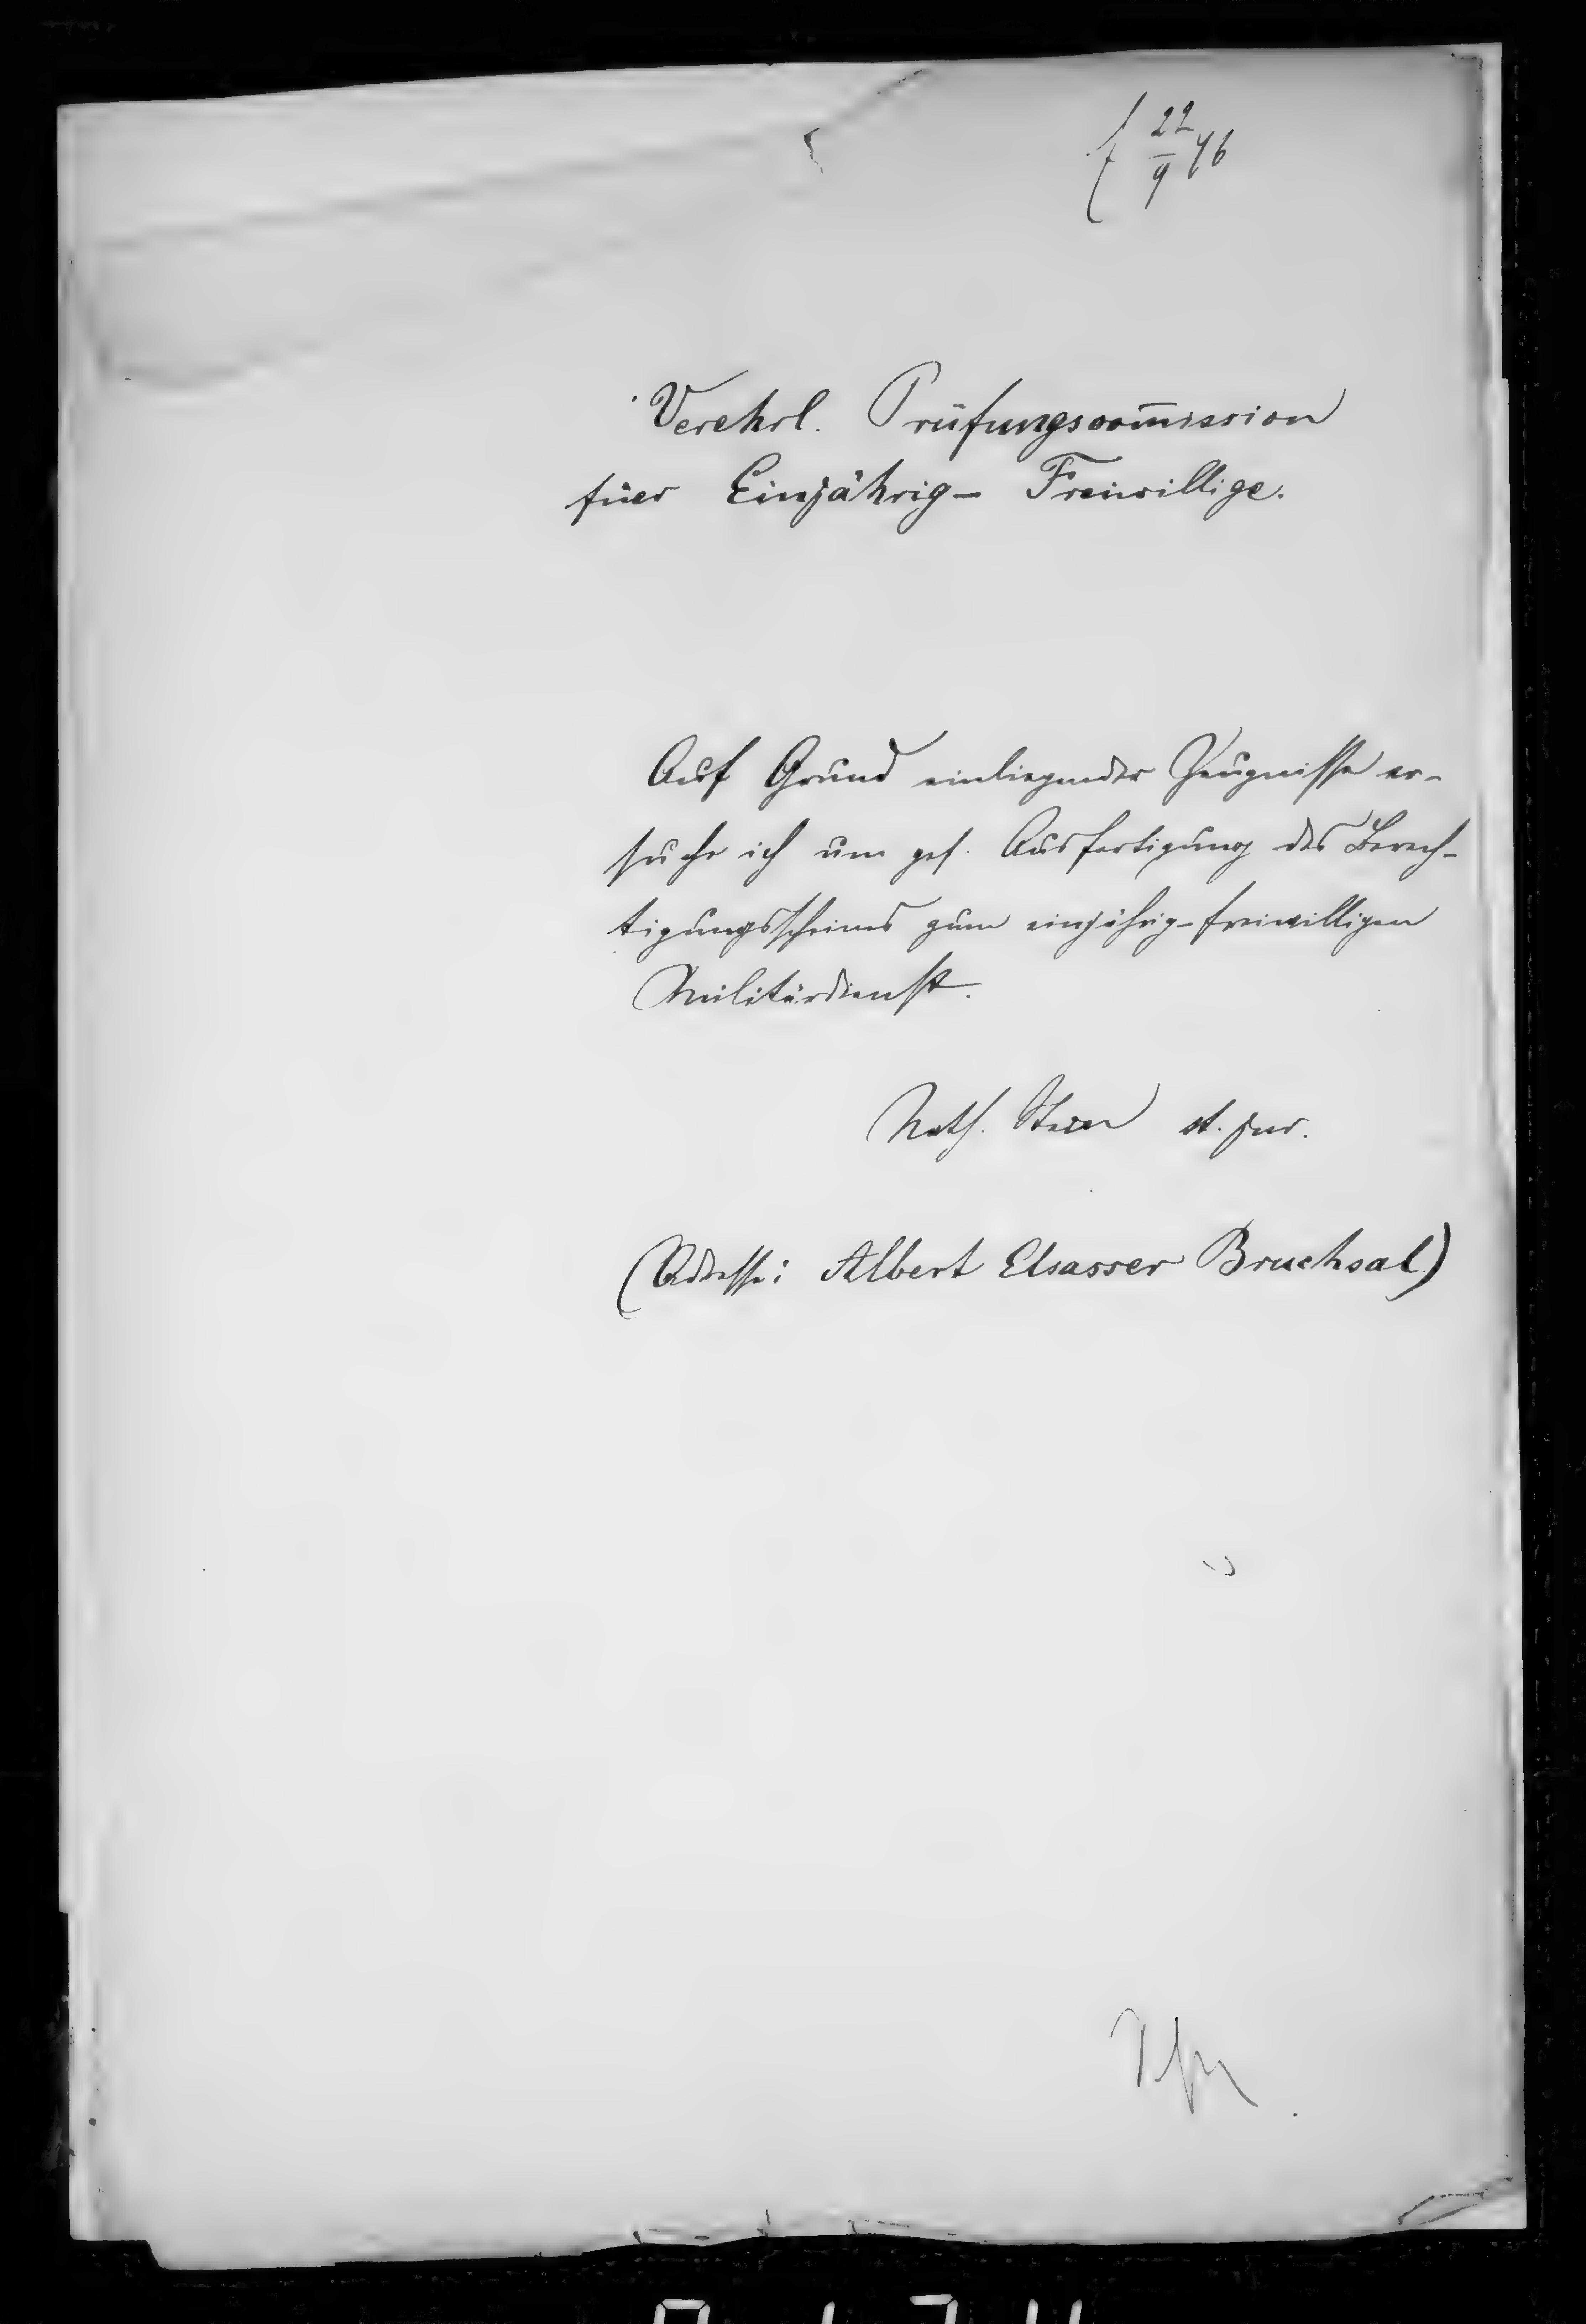 22/9 76
Verehrl. Prüfungscom̅ission
füer Einjährig- Freiwillige.
Auf Grund einliegender Zeugnisse er-
suche ich um gef. Ausfertigung des Berech-
tigungsscheines zum einjährig-freiwilligen
Militärdienst.
Nath. Stein st. jur.
(Adresse: Albert Elsasser Bruchsal)